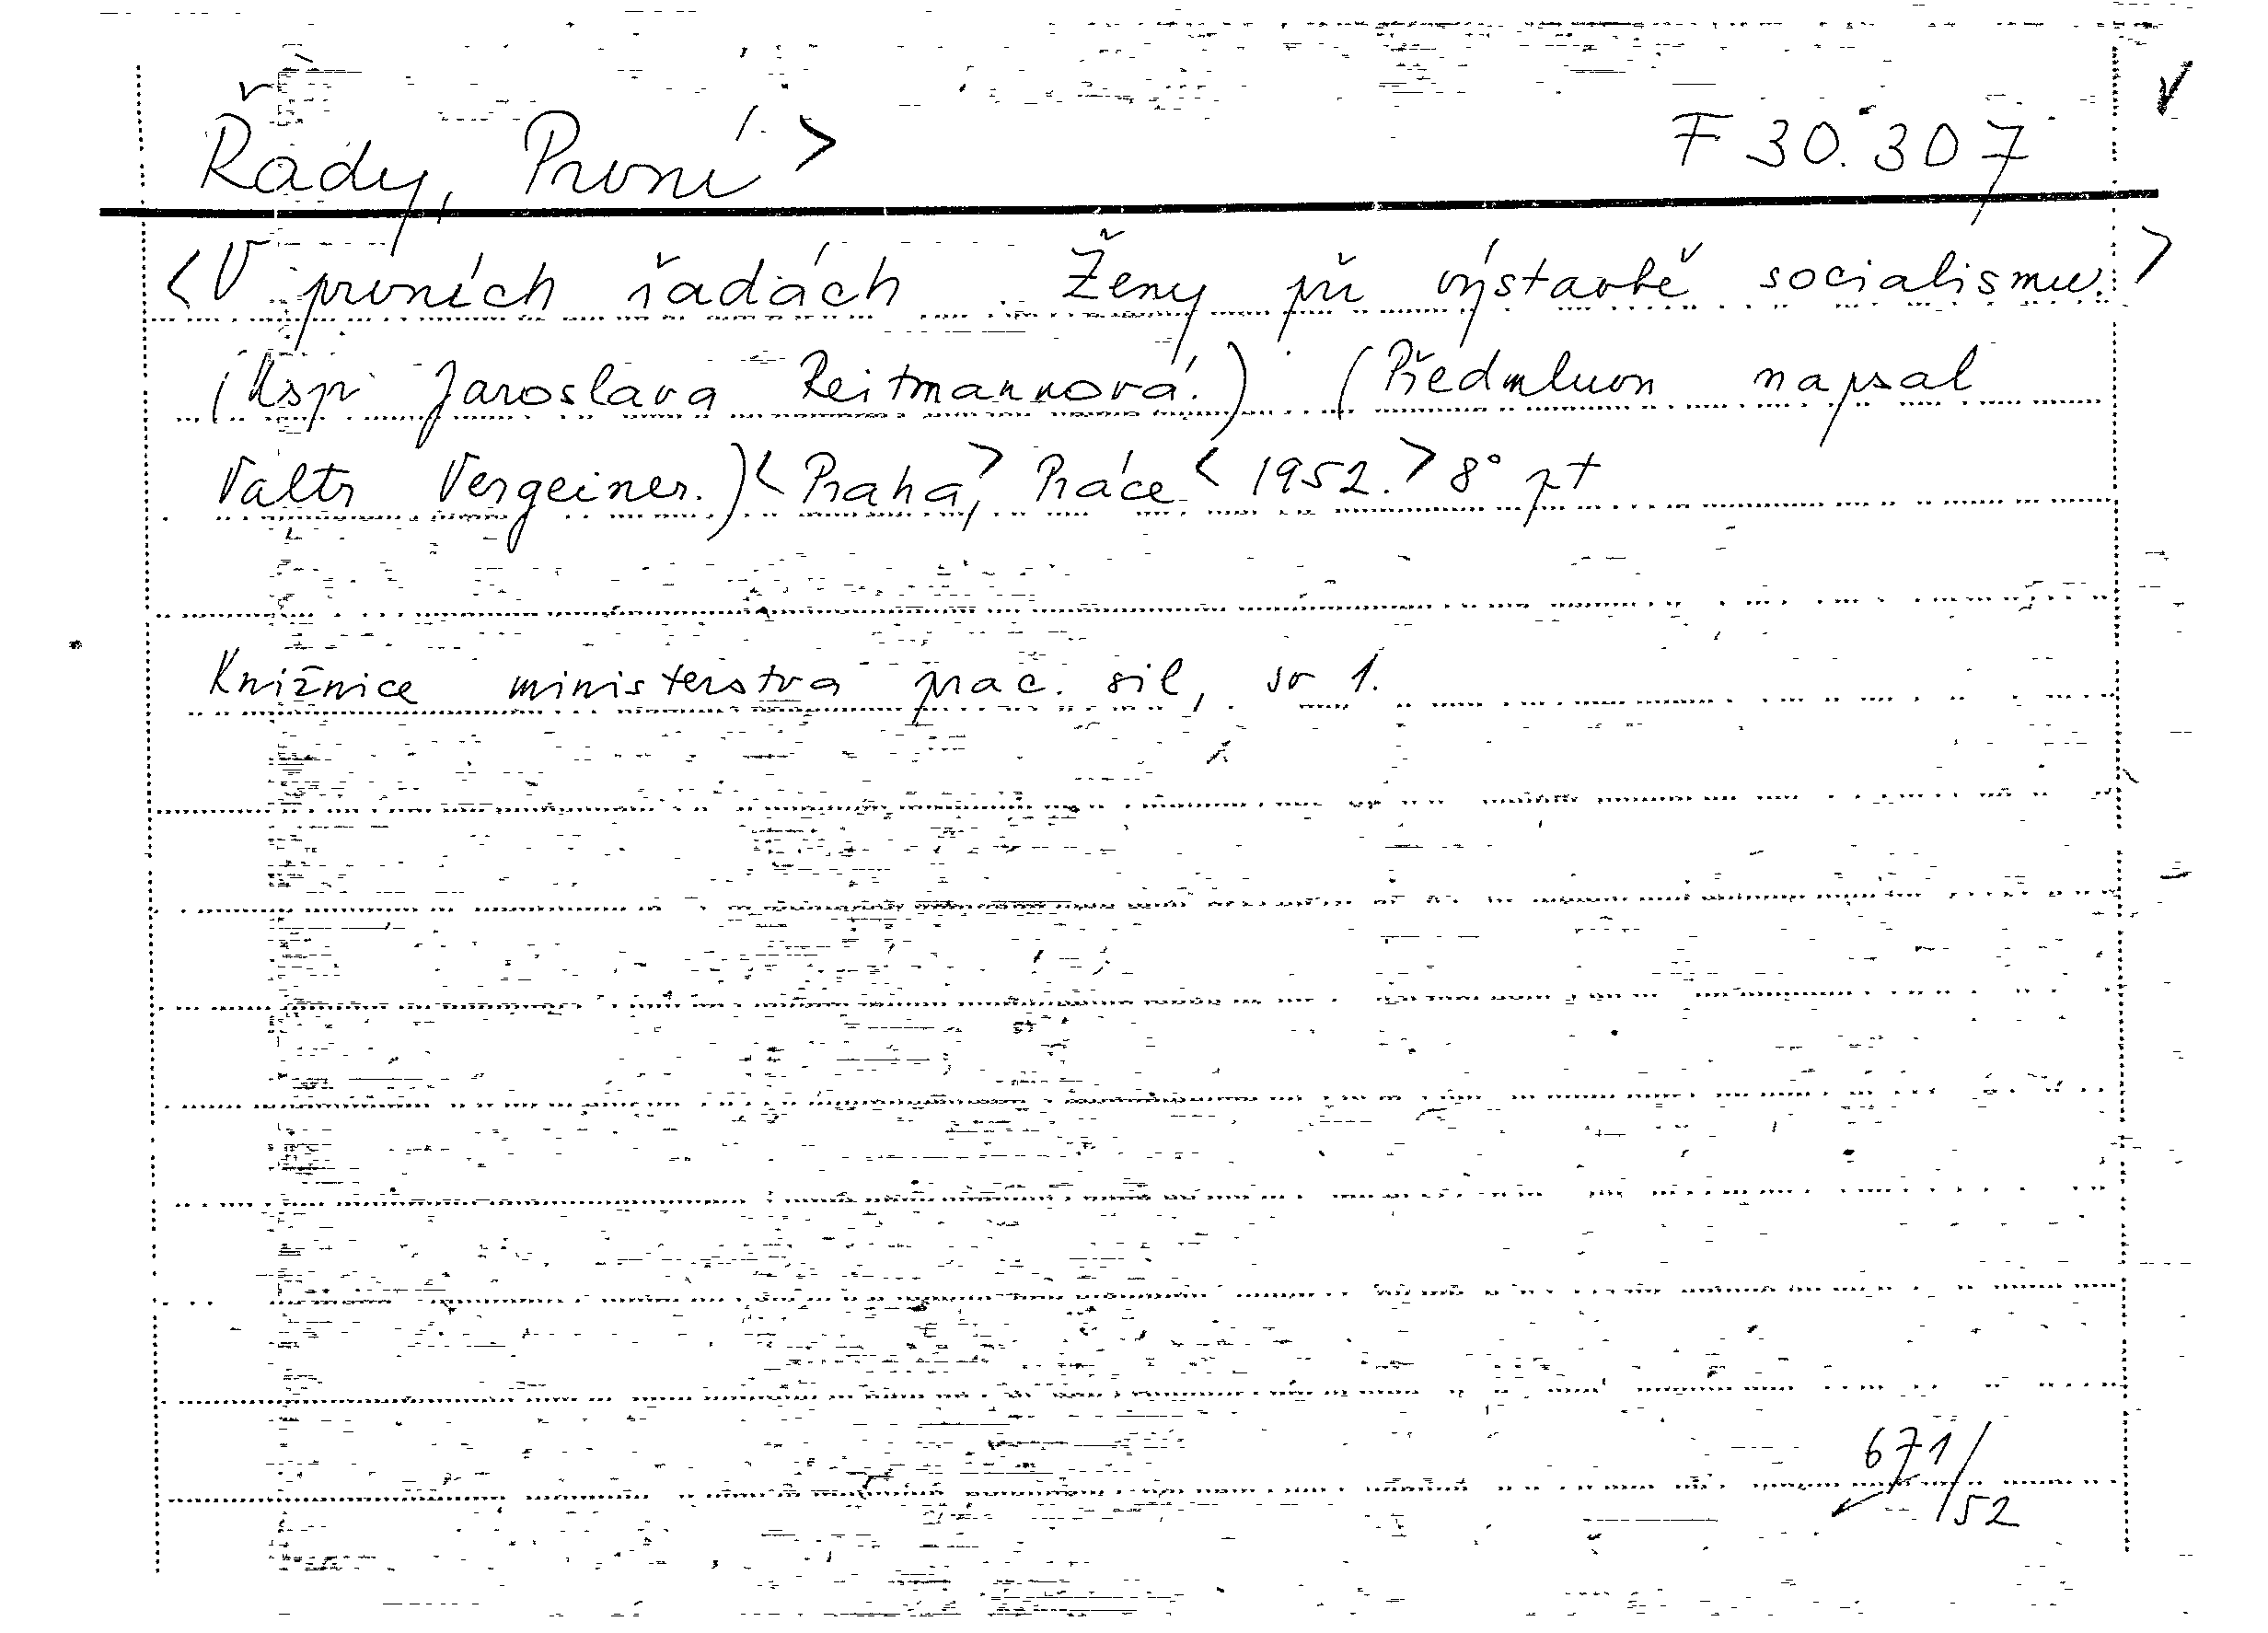 Řady, První > F 30.307
<V prvních řadách. Ženy při výstavbě socialismu.>
(Usp. Jaroslava Reitmannová.) (Předmluvu napsal
Valtr Vergeiner.) <Praha,> Práce <1952.> 8° pt
Knižnice ministerstva prac. sil, sv 1.
671/52